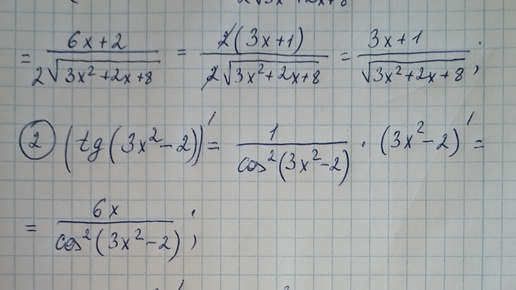 = (6x+2)/(2√(3x²+2x+8)) = (2(3x+1))/(2√(3x²+2x+8)) = (3x+1)/(√(3x²+2x+8)) ;
② (tg(3x²-2))′ = 1/(cos²(3x²-2)) · (3x²-2)′ =
= 6x/(cos²(3x²-2)) ;